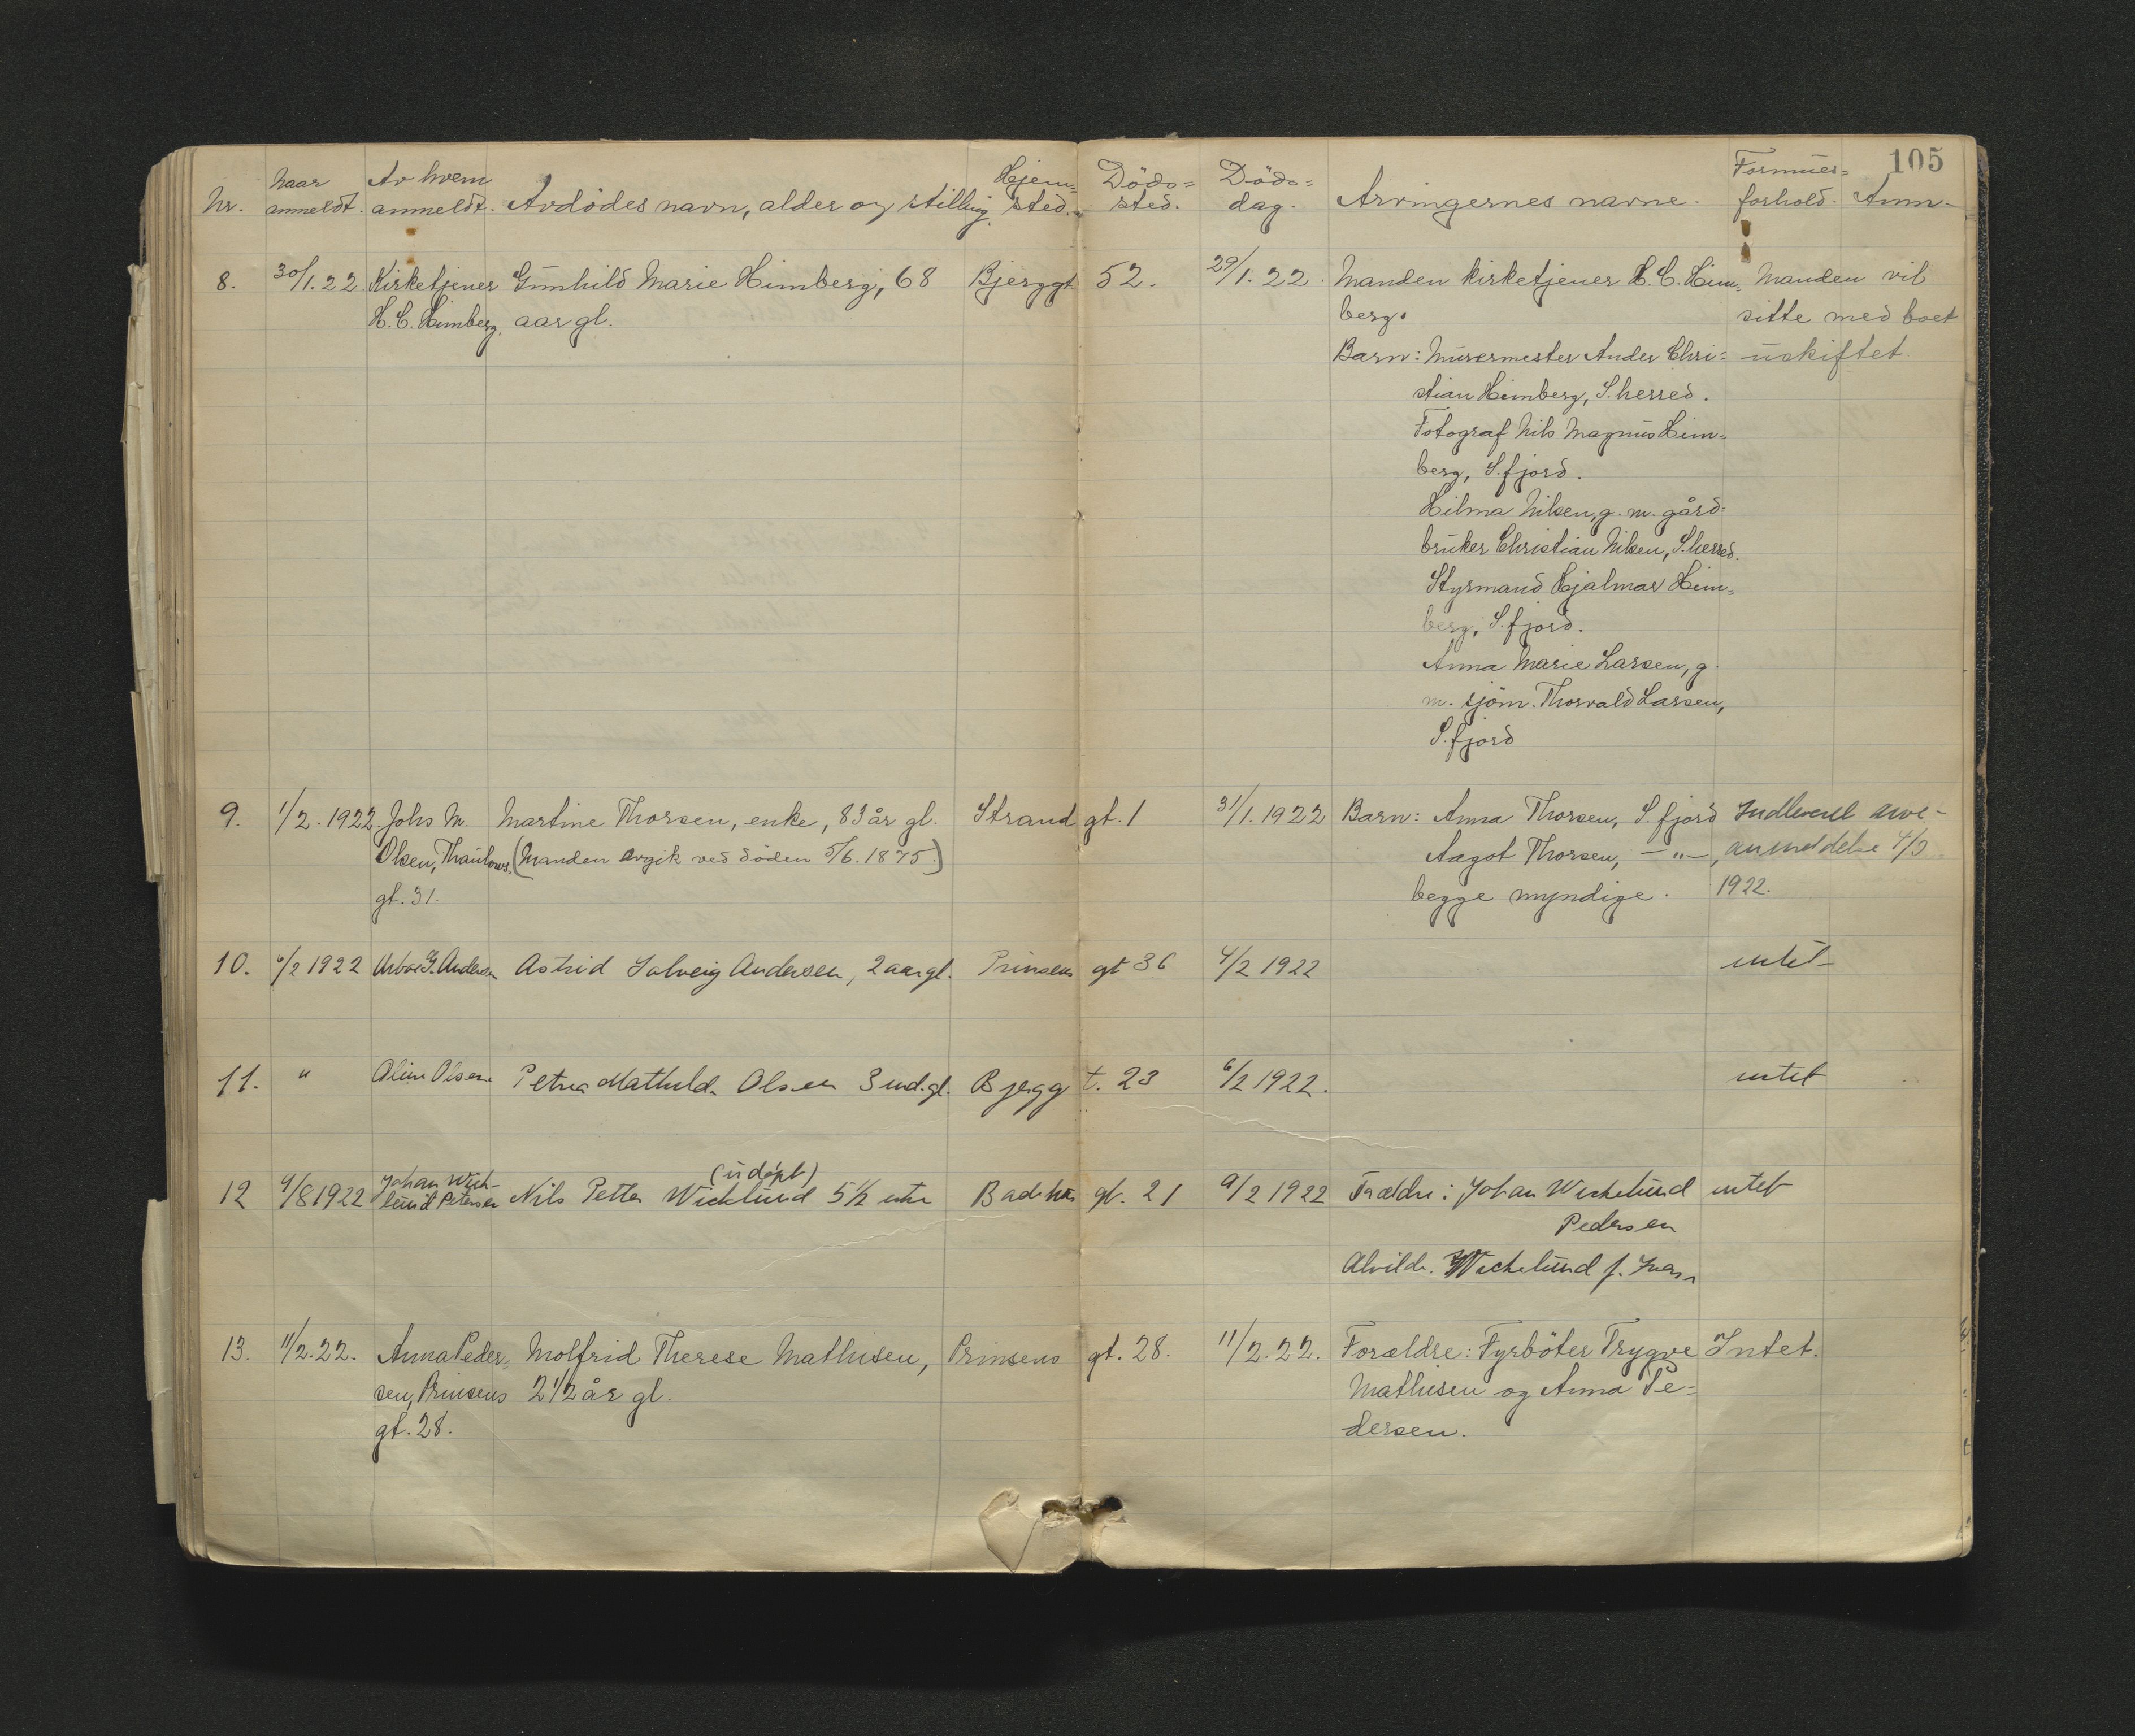 105
Nr. Naar anmeldt. Av hvem anmeldt. Avdödes navn, alder og stilling. Hjem= sted. Döds= sted. Döds= dag. Arvingernes navne. Formues= forhold. Anm.
8. 30/1.22 Kirketjener Gunhild Marie Himberg, 68 Bjerggt. 52. 29/1.22. Manden kirketjener H. C. Him= Manden vil
H. C. Himberg. aar gl. berg. sitte med boet
Barn: Murermester Ander Chri= uskiftet.
stian Himberg, S.herred.
Fotograf Nils Magnus Him=
berg, S.fjord.
Hilma Nilsen, g. m. gård=
bruker Christian Nilsen, S.herred.
Styrmand Hjalmar Him=
berg, S.fjord.
Anna Marie Larsen, g.
m. sjöm. Thorvald Larsen,
S.fjord
9. 1/2.1922 Johs M. Martine Thorsen, enke, 83 år gl. Strand gt. 1 31/1.1922 Barn: Anna Thorsen, S.fjord Indlevert arve-
Olsen, Thaulows (Manden avgik ved döden 5/6.1875.) Aagot Thorsen, —"—, anmeldelse 4/3
gt. 31. begge myndige. 1922.
10. 6/2 1922 G. Andersen Astrid Solveig Andersen, 2 aar gl. Prinsens gt 36 4/2 1922 intet
11. " Olsen Petra Mathilde Olsen 3 md. gl. Bjergg t. 23 6/2 1922. intet
12 9/8 1922 Johan Wick- (udöpt)
lund Petersen Nils Petter Wicklund 5 1/2 Badhus gt. 21 9/2 1922 Foreldre: Johan Wickelund intet
Pedersen
Alvilde Wickelund f.
13. 11/2.22. Anna Peder= Molfrid Therese Mathisen, Prinsens gt. 28. 11/2.22. Forældre: Fyrböter Trygve Intet.
sen, Prinsens 2 1/2 år gl. Mathisen og Anna Pe=
gt. 28. dersen.